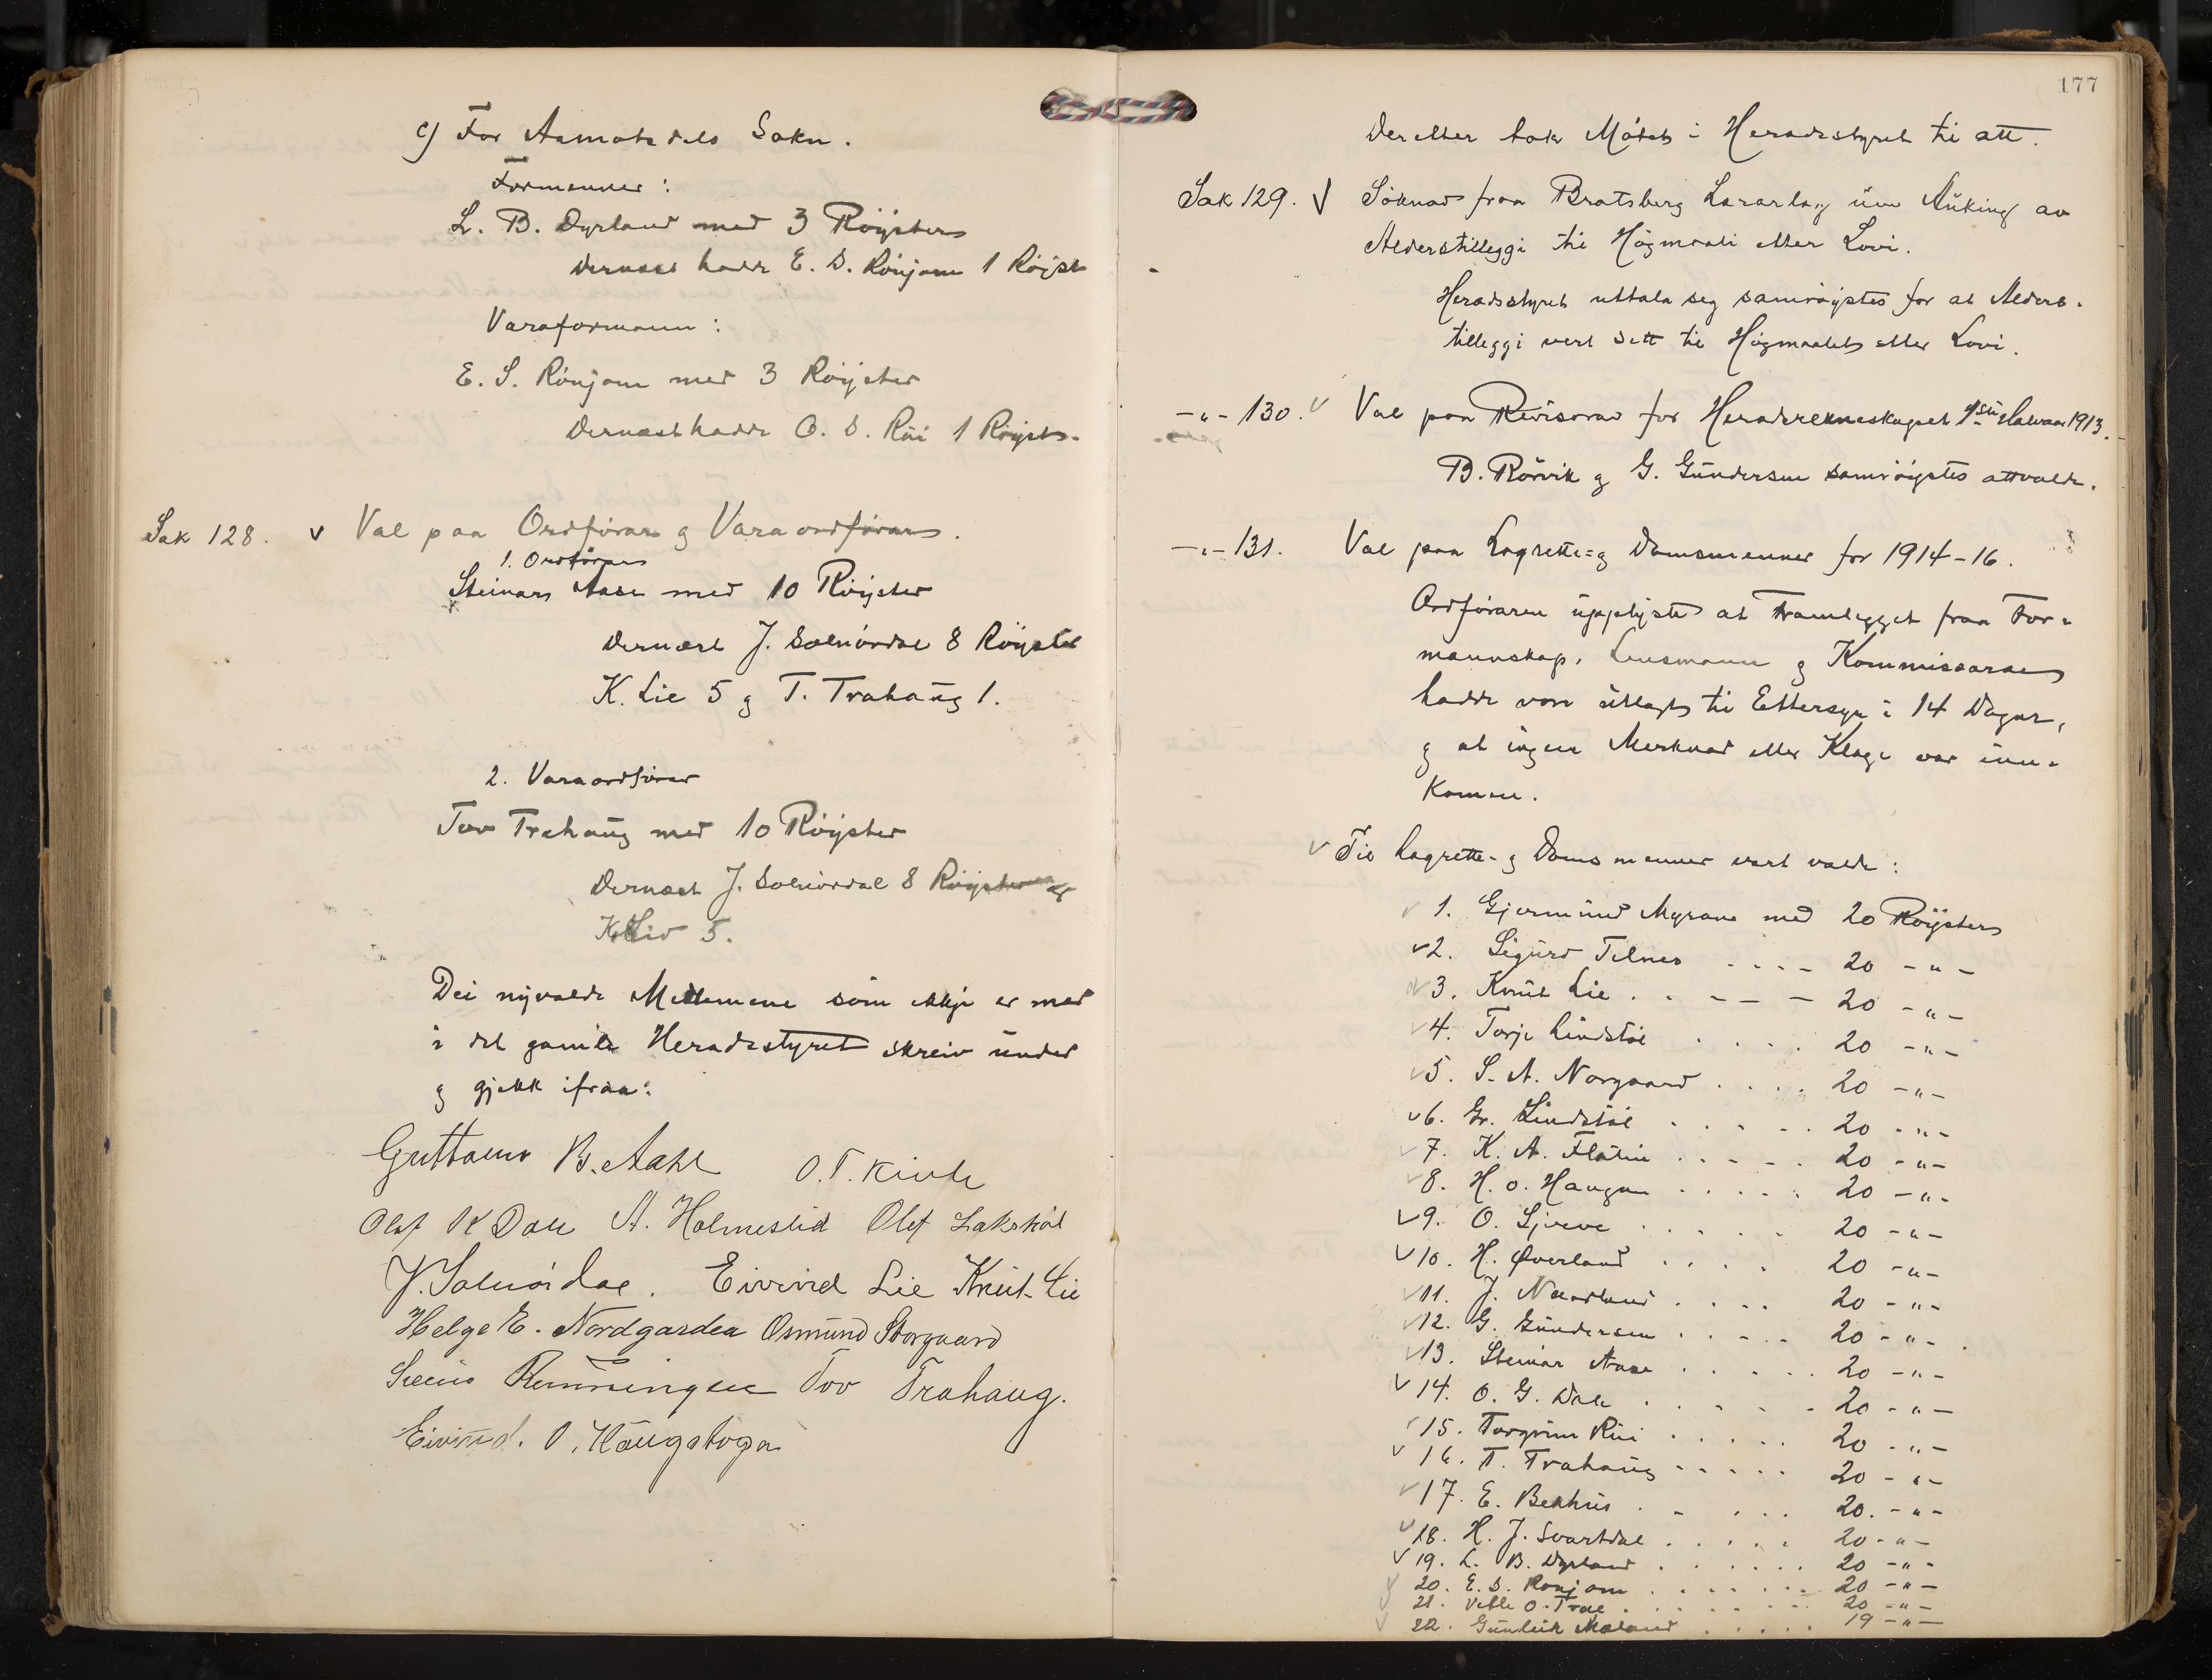 c) For Aamotsdals Sokn.
Formenner:
L. B. Dyrland med 3 Röyster
Dernæst hadde E. S. Rönjom 1 Röyst
Varaformenn:
E. S. Rönjom med 3 Röyster
Dernæst hadde O. S. Rui 1 Röyst.
Sak 128. v Val paa Ordförar og Varaordförar.
1. Ordförar
Steinar Aase med 10 Röyster
Dernæst J. Solnördal 8 Röyster
K. Lie 5 og T. Trahaug 1.
2. Varaordförar
Tov Trahaug med 10 Röyster
Dernæst J. Solnördal 8 Röyster og
K. Lie 5.
Dei nyvalde Medlemene som ikkje er med
i det gamle Heradsstyret skreiv under
og gjekk ifraa:
Guttorm B. Aahl O. T. Kivle
Olaf K Dale A. Holmeslid Olef Lakskål
J. Solnördal. Eivind Lie Knut Lie
Helge E. Nordgarden Osmund Storgaard
Svein Rminingen Tov Trahaug.
Eivind. O. Haugstoga
177
Deretter tok Mötet i Heradsstyret til att.
Sak 129. V Söknad fraa Bratsberg Lærarlag um Auking av
Alderstilleggi til Högmaali etter Lovi.
Heradsstyret uttala seg samröystes for at Alders-
tilleggi vert sett til Högmaalet etter Lovi.
-"- 130. v Val paa Revisorar for Heradsrekneskapet 1ste Halvaar 1913.
B. Rörvik og G. Gundersen samröystes attvalde.
-"- 131. Val paa Lagrette- og Domsmenner for 1914-16.
Ordföraren upplyste at Framlegget fraa For-
mannskap, Lensmann og Kommissærar
hadde vore utlagt til Ettersyn i 14 Dagar,
og at ingen Merknad eller Klage var inn-
komen.
v Til Lagrette- og Domsmenner vart valde:
v 1. Gjermund Myrane med 20 Röyster
v 2. Sigurd Telnes .... 20 -"-
v 3. Knut Lie .... 20 -"-
v 4. Torje Lindstöl .... 20 -"-
v 5. S. A. Norgaard .... 20 -"-
v 6. Gr. Lindstöl .... 20 -"-
v 7. K. A. Flatin .... 20 -"-
v 8. H. O. Haugan .... 20 -"-
v 9. O. Ljosve .... 20 -"-
v 10. H. Øverland .... 20 -"-
v 11. J. Nordland .... 20 -"-
v 12. G. Gundersen .... 20 -"-
v 13. Steinar Aase .... 20 -"-
v 14. O. G. Dale .... 20 -"-
v 15. Torgrim Rui .... 20 -"-
v 16. T. Trahaug .... 20 -"-
v 17. E. Bekhus .... 20 -"-
v 18. H. J. Svartdal .... 20 -"-
v 19. L. B. Dyrland .... 20 -"-
v 20. E. S. Rönjom .... 20 -"-
v 21. Vetle O. Trae .... 20 -"-
v 22. Gunleik Mæland .... 19 -"-